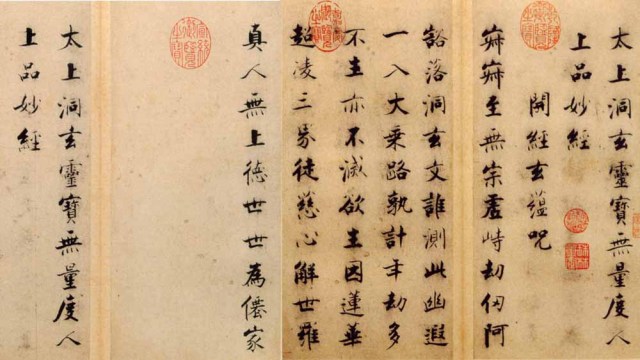 太上洞玄靈寶無量度人
上品妙經
開經玄蘊咒
寂寂至無宗虛峙劫仞阿
豁落洞玄文誰測此幽遐
一入大乘路孰計年劫多
不生亦不滅欲生因蓮華
超凌三界徒慈心解世羅
真人無上德世世為僊家
太上洞玄靈寶無量度人
上品妙經